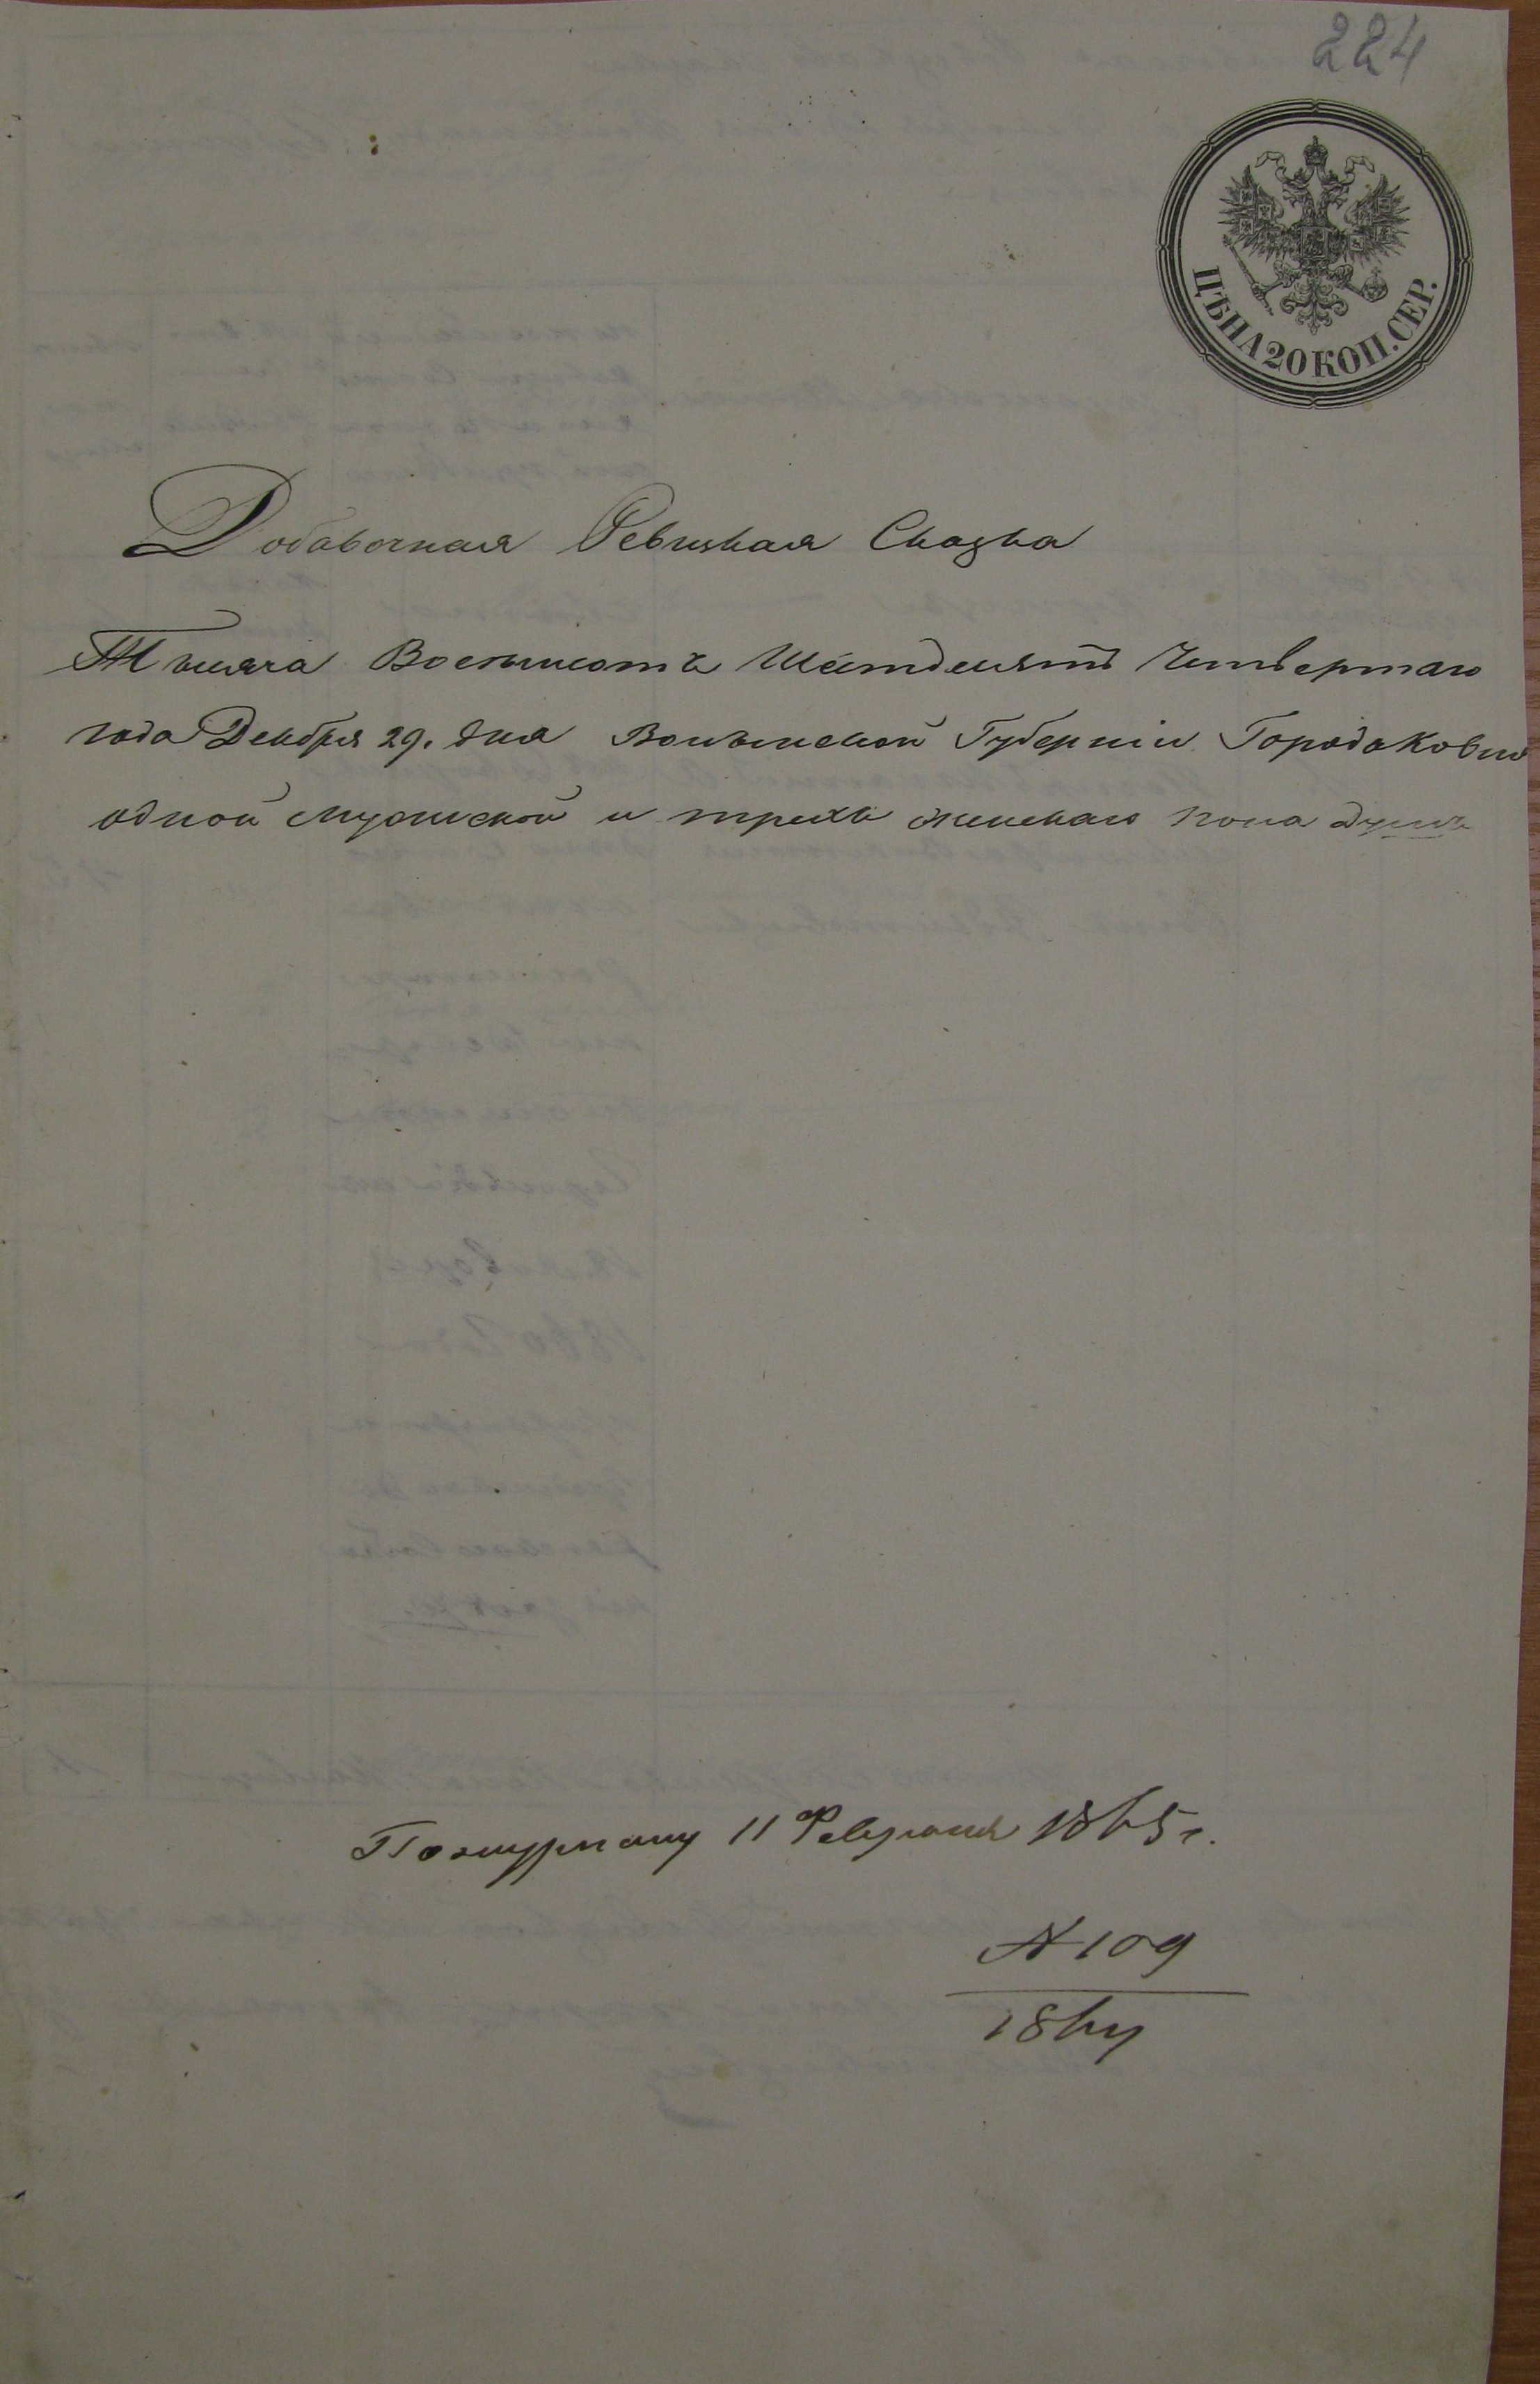 224
ЦѢНА 20 КОП. СЕР.
Добавочная Ревизкая Сказка
Тысяча Восемьсотъ Шестдесятъ Четвертаго
года Декабря 29. дня Волынской Губерніи Города Ковля
одной мужеской и трехъ женскаго пола душъ
По журналу 11 Февраля 1865 г.
N 109
1864